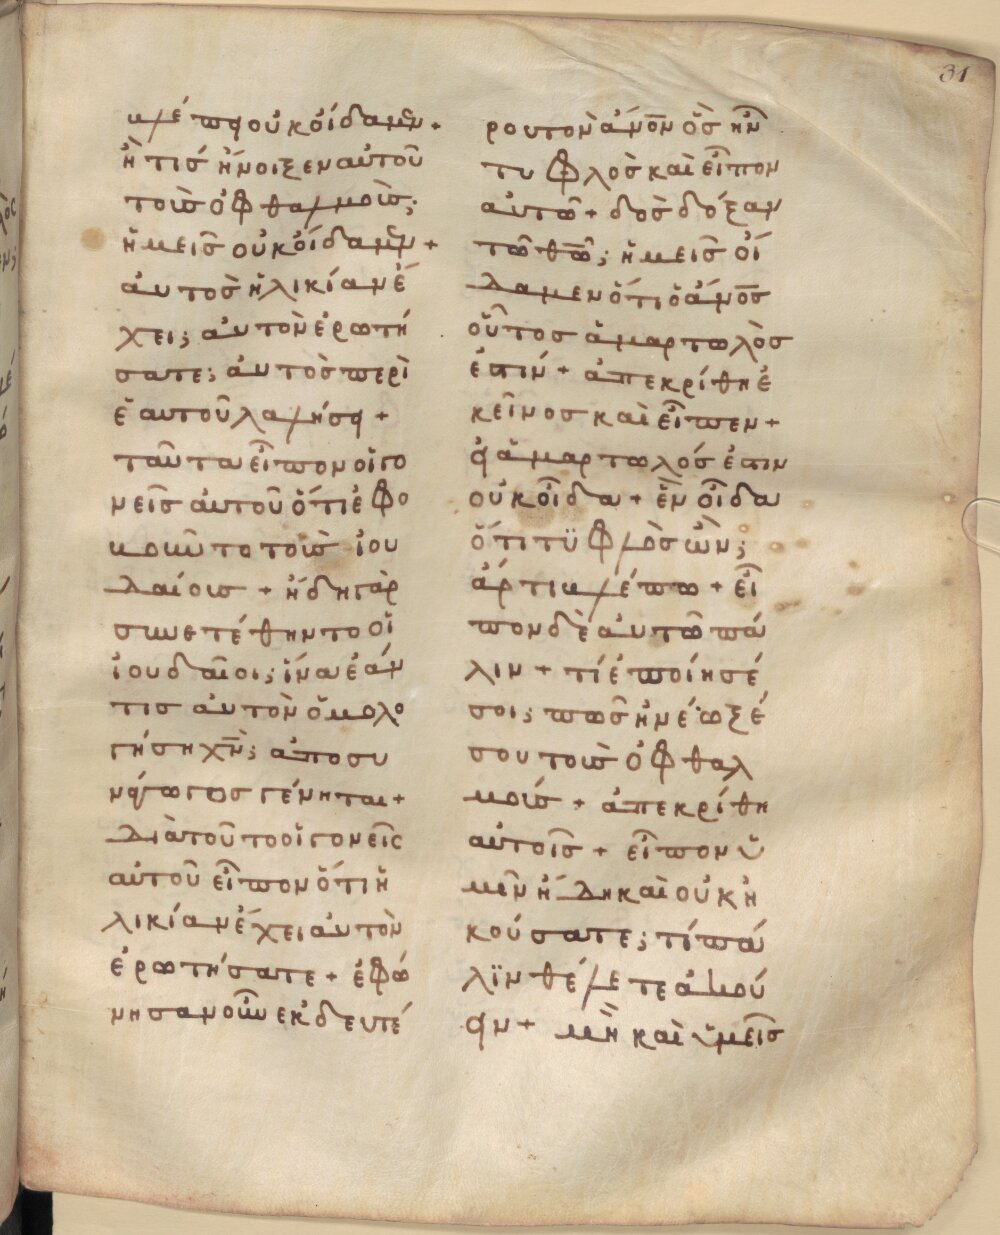 31
βλέπει οὐκ οἴδαμεν +
ἢ τίς ἤνοιξεν αὐτοῦ
τοὺς ὀφθαλμοὺς;
ἡμεῖς οὐκ οἴδαμεν +
αὐτὸς ἡλικίαν ἔ
χει; αὐτὸν ἐρωτή
σατε; αὐτὸς περὶ
ἑαυτοῦ λαλήσει +
ταῦτα εἶπον οἱ γο
νεῖς αὐτοῦ ὅτι ἐφο
βοῦντο τοὺς ἰου
δαίους + ἤδη γὰρ
συνετέθηντο οἱ
ἰουδαῖοι; ἵνα ἐάν
τις αὐτὸν ὁμολο
γήση χν̅; ἀποσυ
νάγωγος γένηται +
διὰ τοῦτο οἱ γονεῖς
αὐτοῦ εἶπον ὅτι ἡ
λικίαν ἔχει αὐτὸν
ἐρωτήσατε + ἐφώ
νησαν οὖν ἐκ δευτέ
ρου τὸν ἄνο̅ν ὃς ἦν
τυφλὸς καὶ εἶπον
αὐτῶ + δὸς δόξαν
τῶ θω̅; ἡμεῖς οἴ
δαμεν ὅτι ὁ ἄνο̅ς
οὗτος ἁμαρτωλὸς
ἐστιν + ἀπεκρίθη ἐ
κεῖνος καὶ εἶπεν +
εἰ ἁμαρτωλός ἐστιν
οὐκ οἶδα + ἓν οἶδα
ὅτι τυφλὸς ὢν;
ἄρτι βλέπω + εἶ
πον δὲ αὐτῶ πά
λιν + τί ἐποίησέ
σοι; πῶς ἠνέωξέ
σου τοὺς ὀφθαλ
μούς + ἀπεκρίθη
αὐτοῖς + εἶπον ὑ
μῖν ἤδη καὶ οὐκ ἠ
κούσατε; τί πά
λϊν θέλετε ἀκού
ειν + μὴ καὶ ὑμεῖς